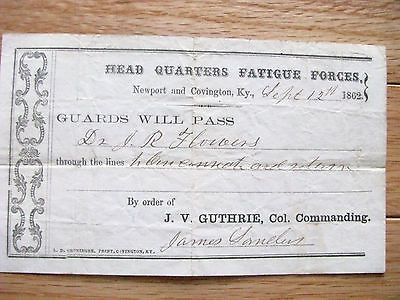 HEAD QUARTERS FATIGUE FORCES,
Newport and Covington, Ky., Sept 12th 1862.
GUARDS WILL PASS
Dr J. R. Flowers
through the lines to Cincinnati and return
By order of
J. V. GUTHRIE, Col. Commanding.
James Sanders
PRINT, COVINGTON, KY.